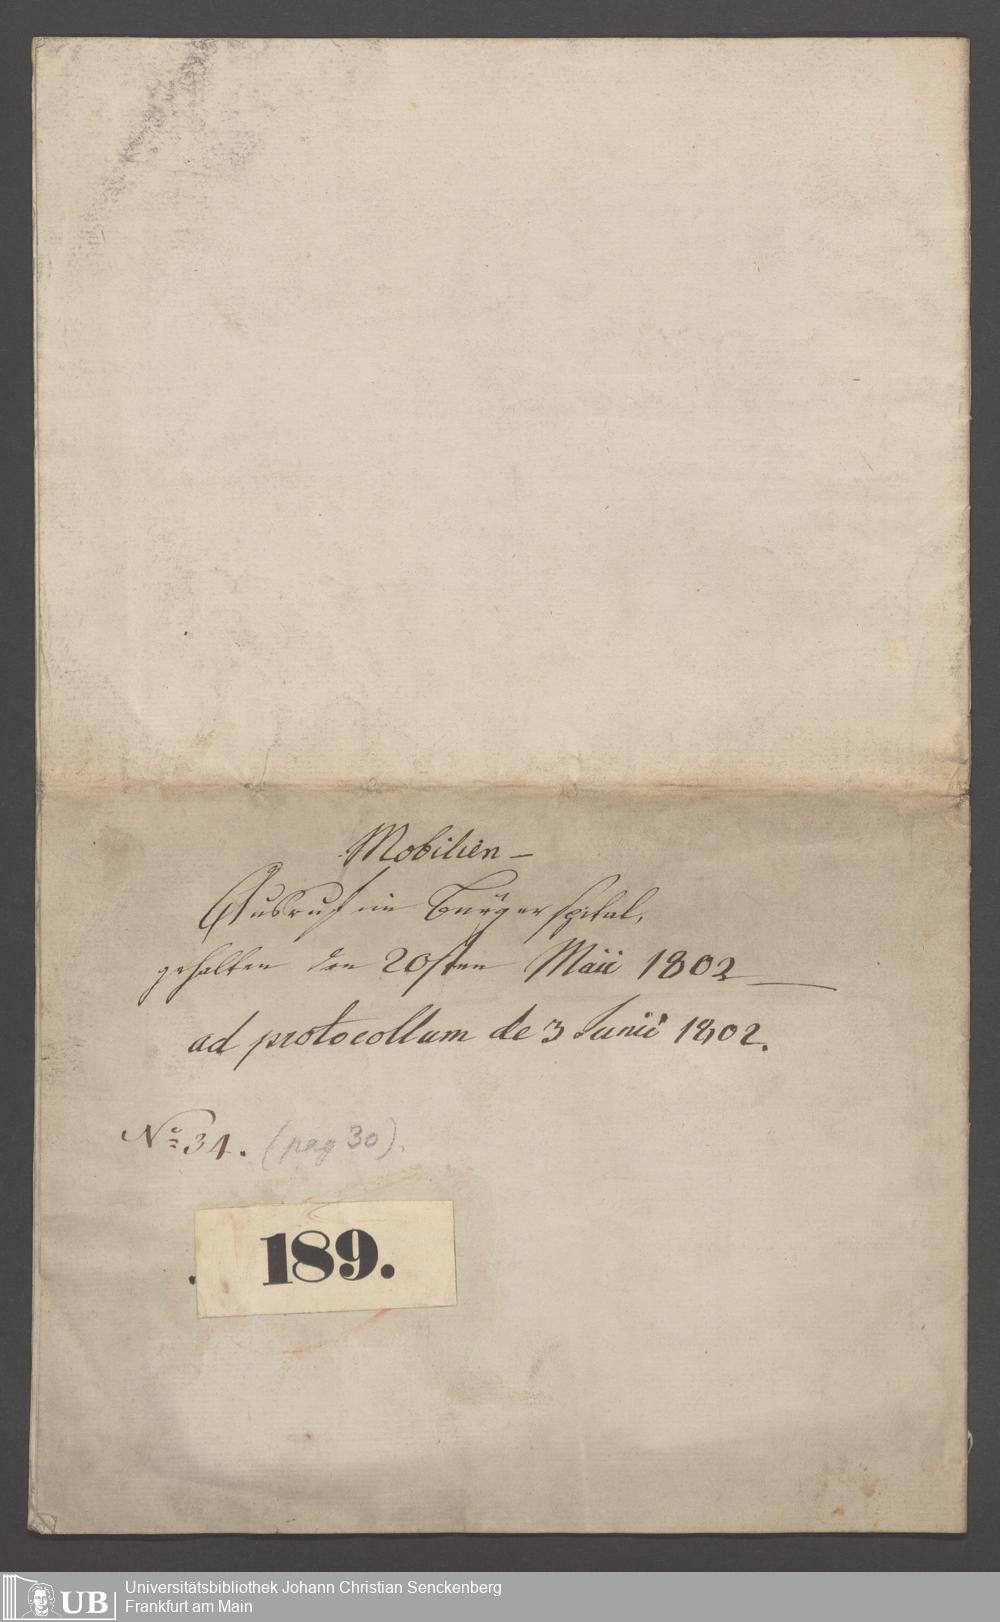 Mobilien –
Ausruf im Bürgerspital,
gehalten den 20sten Maii 1802
ad protocollum de 3 Junii 1802.
No 31. (pag 30).
189.
UB Universitätsbibliothek Johann Christian Senckenberg
Frankfurt am Main